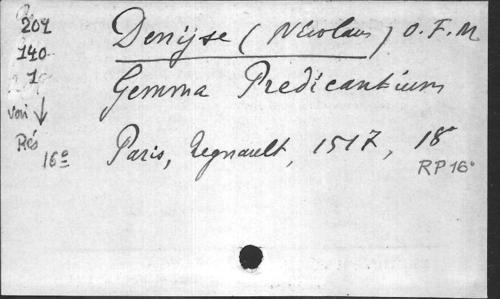 201 Denijse (Nicolaus) O.F.M
140
1 Gemma Predicantium
voir ↓
Rés 16° Paris, Regnault, 1517, 18°
RP 16°